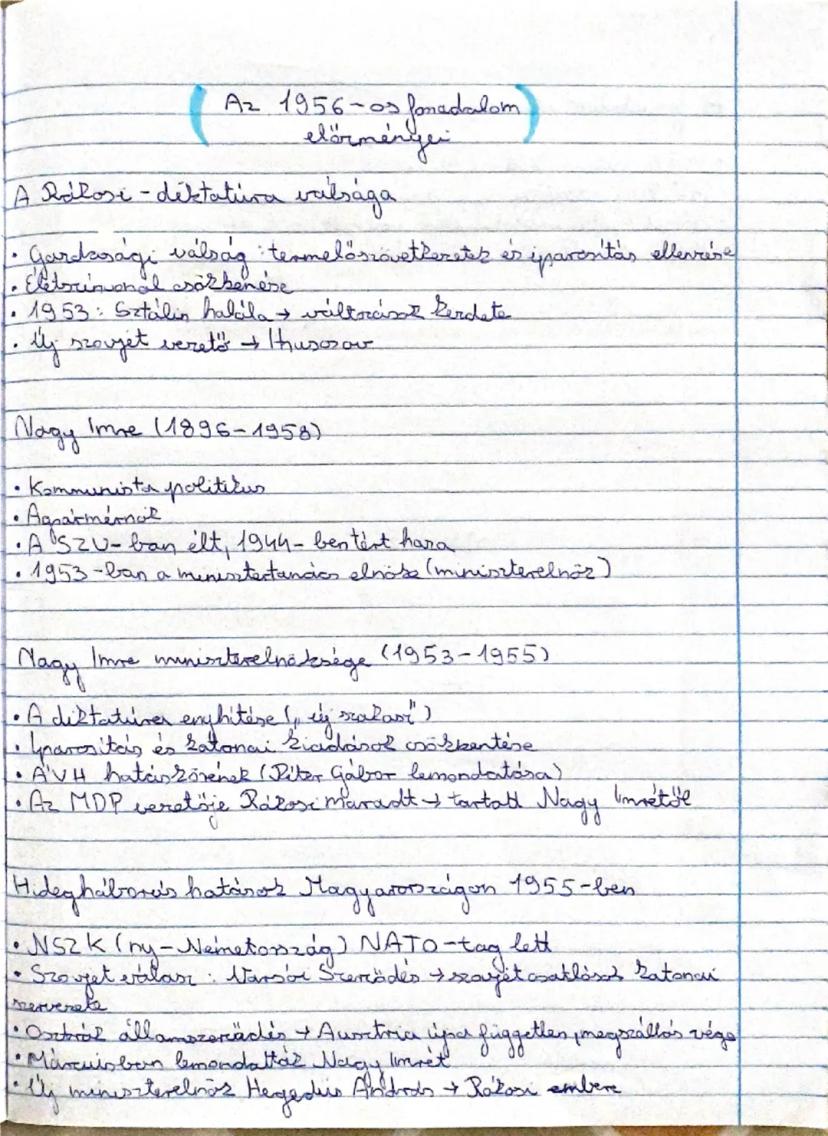 Az 1956-os forradalom
előzményei
A Rákosi-diktatúra válsága
• Gazdasági válság: termelőszövetkezetek és iparosítás ellenzése
• Életszínvonal csökkenése
• 1953: Sztálin halála → változások kezdete
• Új szovjet vezető → Hruscsov
Nagy Imre (1896-1958)
• Kommunista politikus
• Agrármérnök
• A SZU-ban élt, 1944-ben tért haza
• 1953-ban a minisztertanács elnöke (miniszterelnök)
Nagy Imre miniszterelnöksége (1953-1955)
• A diktatúra enyhítése („új szakasz")
• Iparosítás és katonai kiadások csökkentése
• ÁVH hatáskörének (Péter Gábor lemondatása)
• Az MDP vezetője Rákosi maradt → tartott Nagy Imrétől
Hidegháborús hatások Magyarországon 1955-ben
• NSZK (ny-Németország) NATO-tag lett
• Szovjet válasz: Varsói Szerződés → szovjet csatlósok katonai
szervezete
• Osztrák államszerződés → Ausztria újra független, megszállás vége
• Márciusban lemondatták Nagy Imrét
• Új miniszterelnök Hegedüs András → Rákosi embere